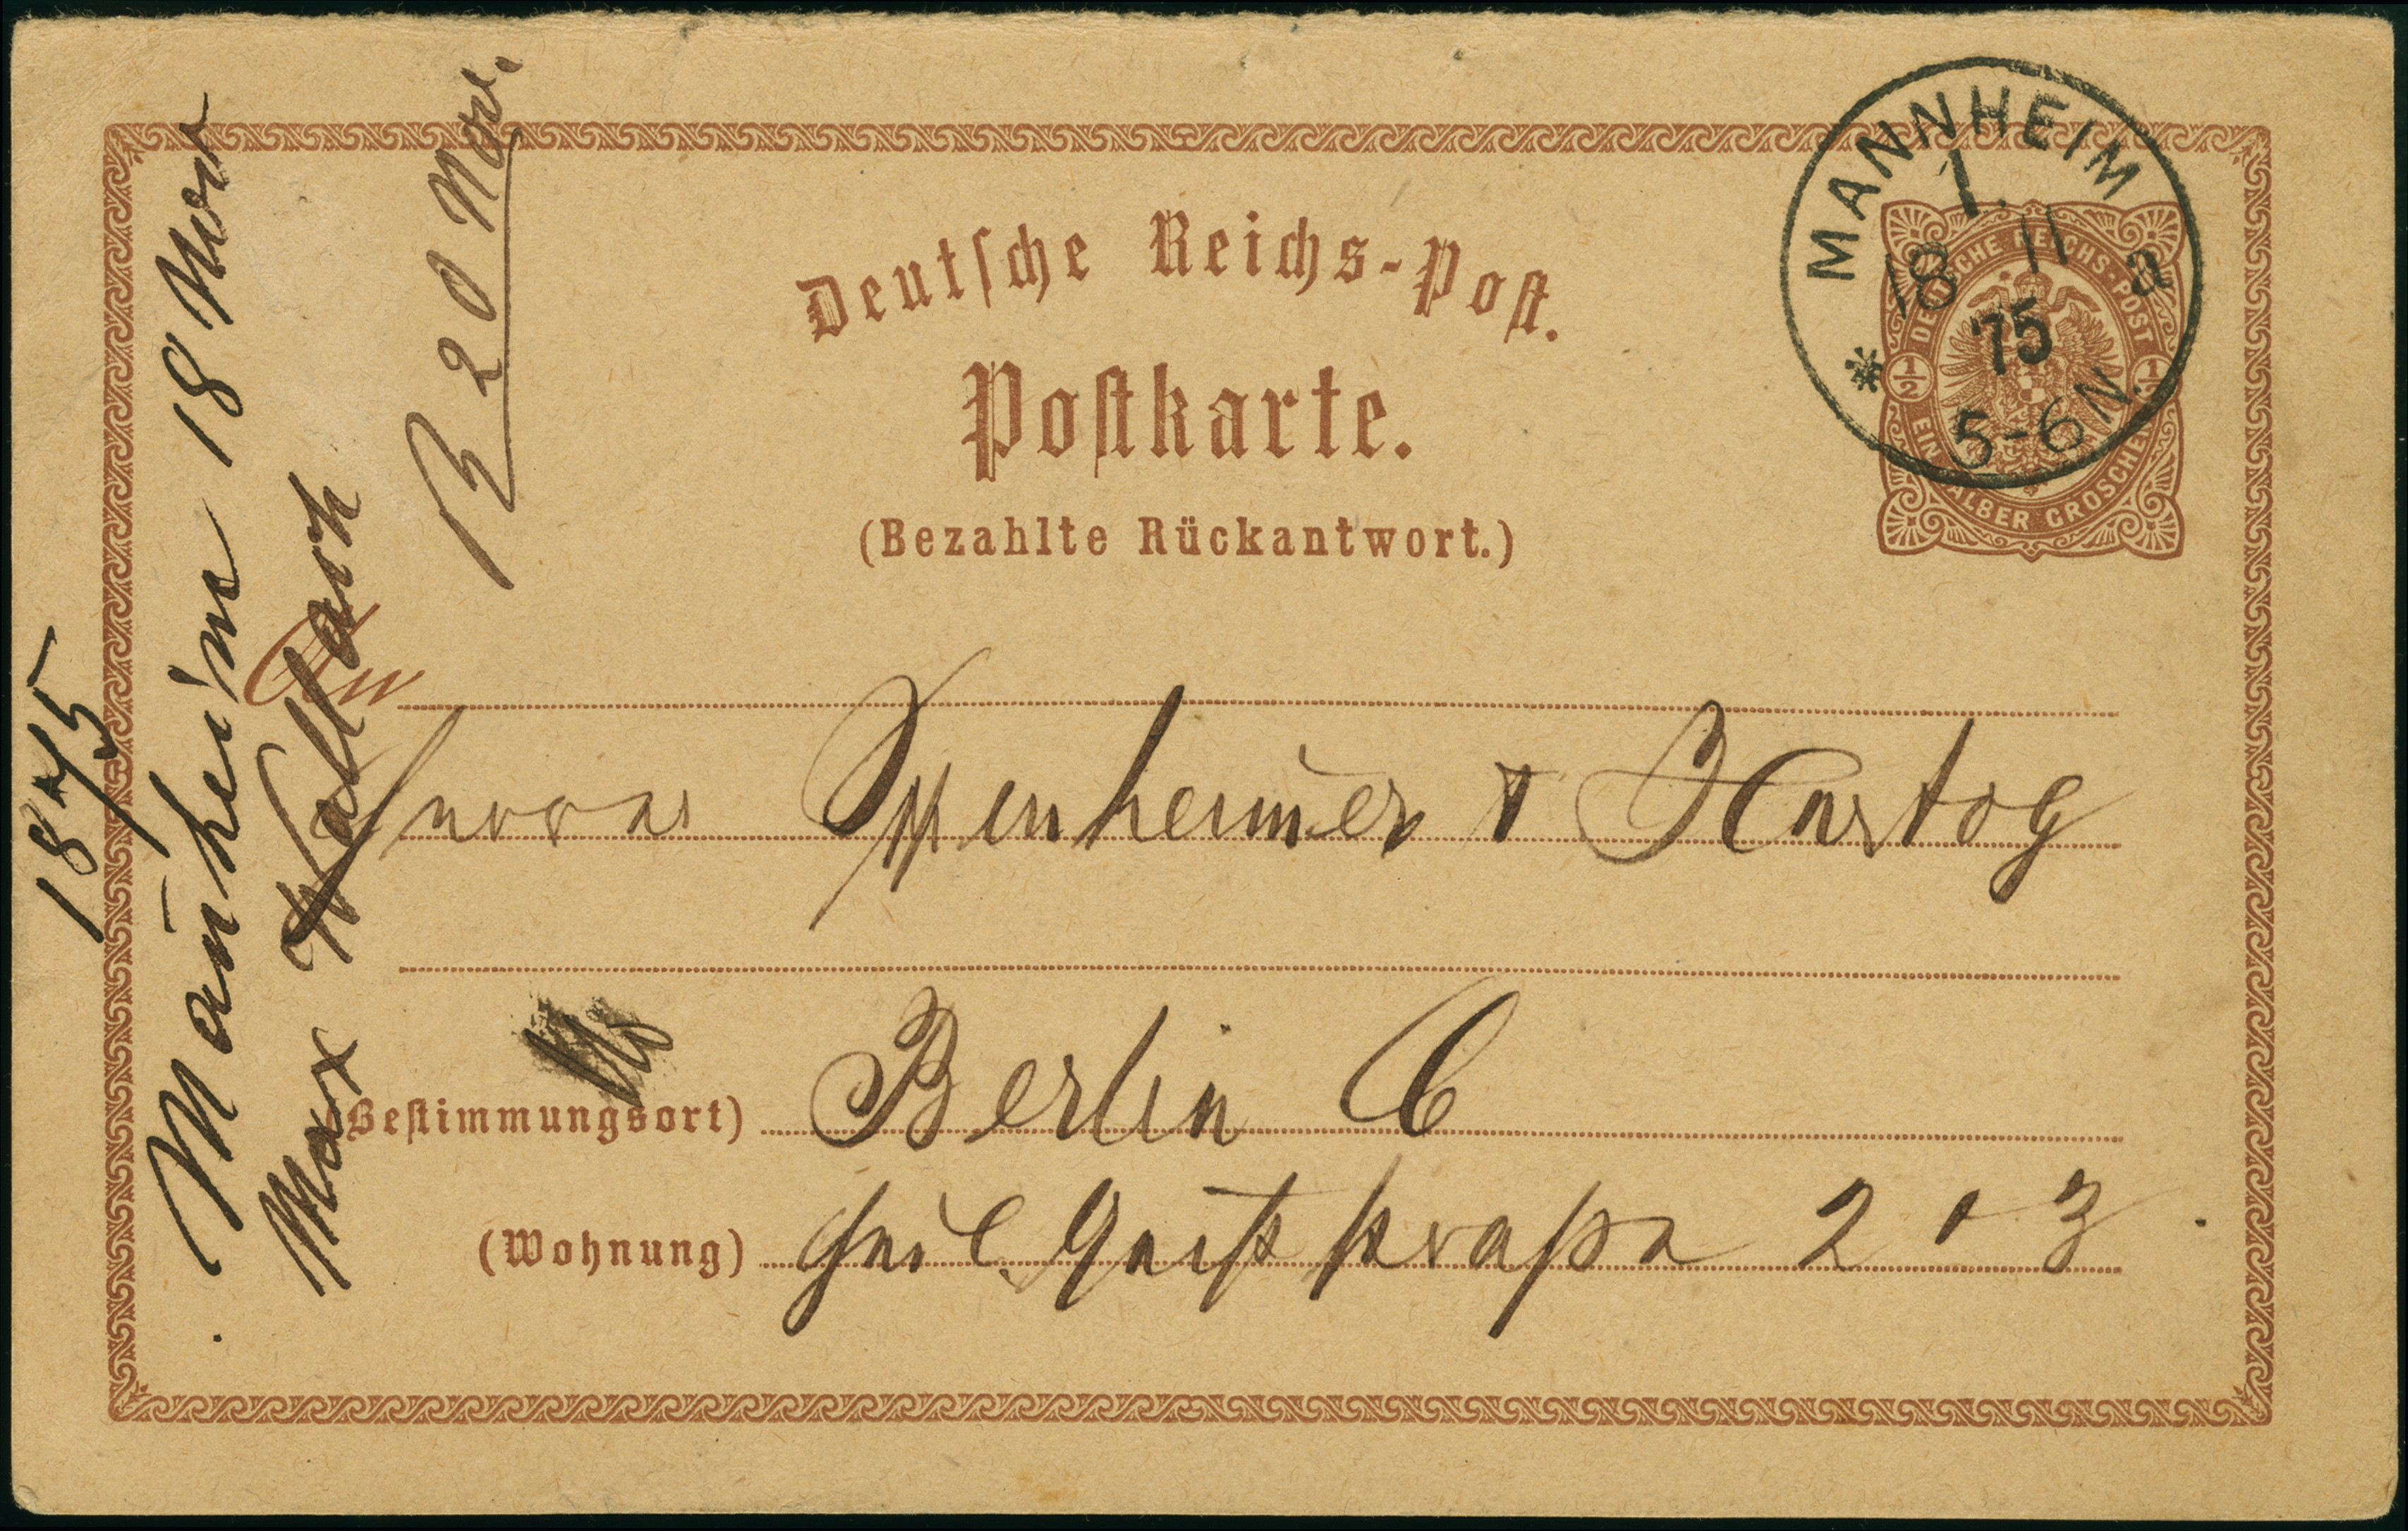 Deutsche Reichs-Post.
Postkarte.
(Bezahlte Rückantwort.)
MANNHEIM
1.
18 11 a
75
* 5-6N.
DEUTSCHE REICHS-POST
1/2 1/2
EIN HALBER GROSCHEN
An
Herren Oppenheimer & Hartog
(Bestimmungsort) Berlin C
(Wohnung) Heil. Geiststraße 2 & 3.
1875
Manheim 18 Novr
Max Wallach
R 20 Nov.